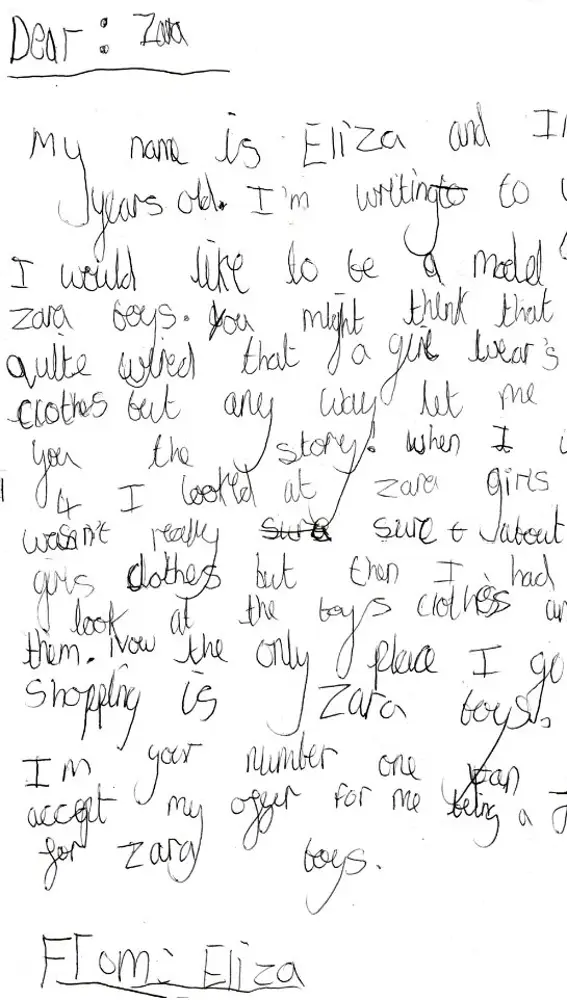 Dear: Zara
My name is Eliza and I'
years old. I'm writing to to
I would like to be a model
zara boys. You might think that
quite wired that a girl wear's
clothes but any way let me
you the story! when I
4 I looked at zara girls
wasn't really sure sure about
girls clothes but then I had
look at the boys clothes an
them. Now the only place I go
shopping is Zara boys.
I'm your number one fan
accept my offer for me being a
for zara boys.
From: Eliza